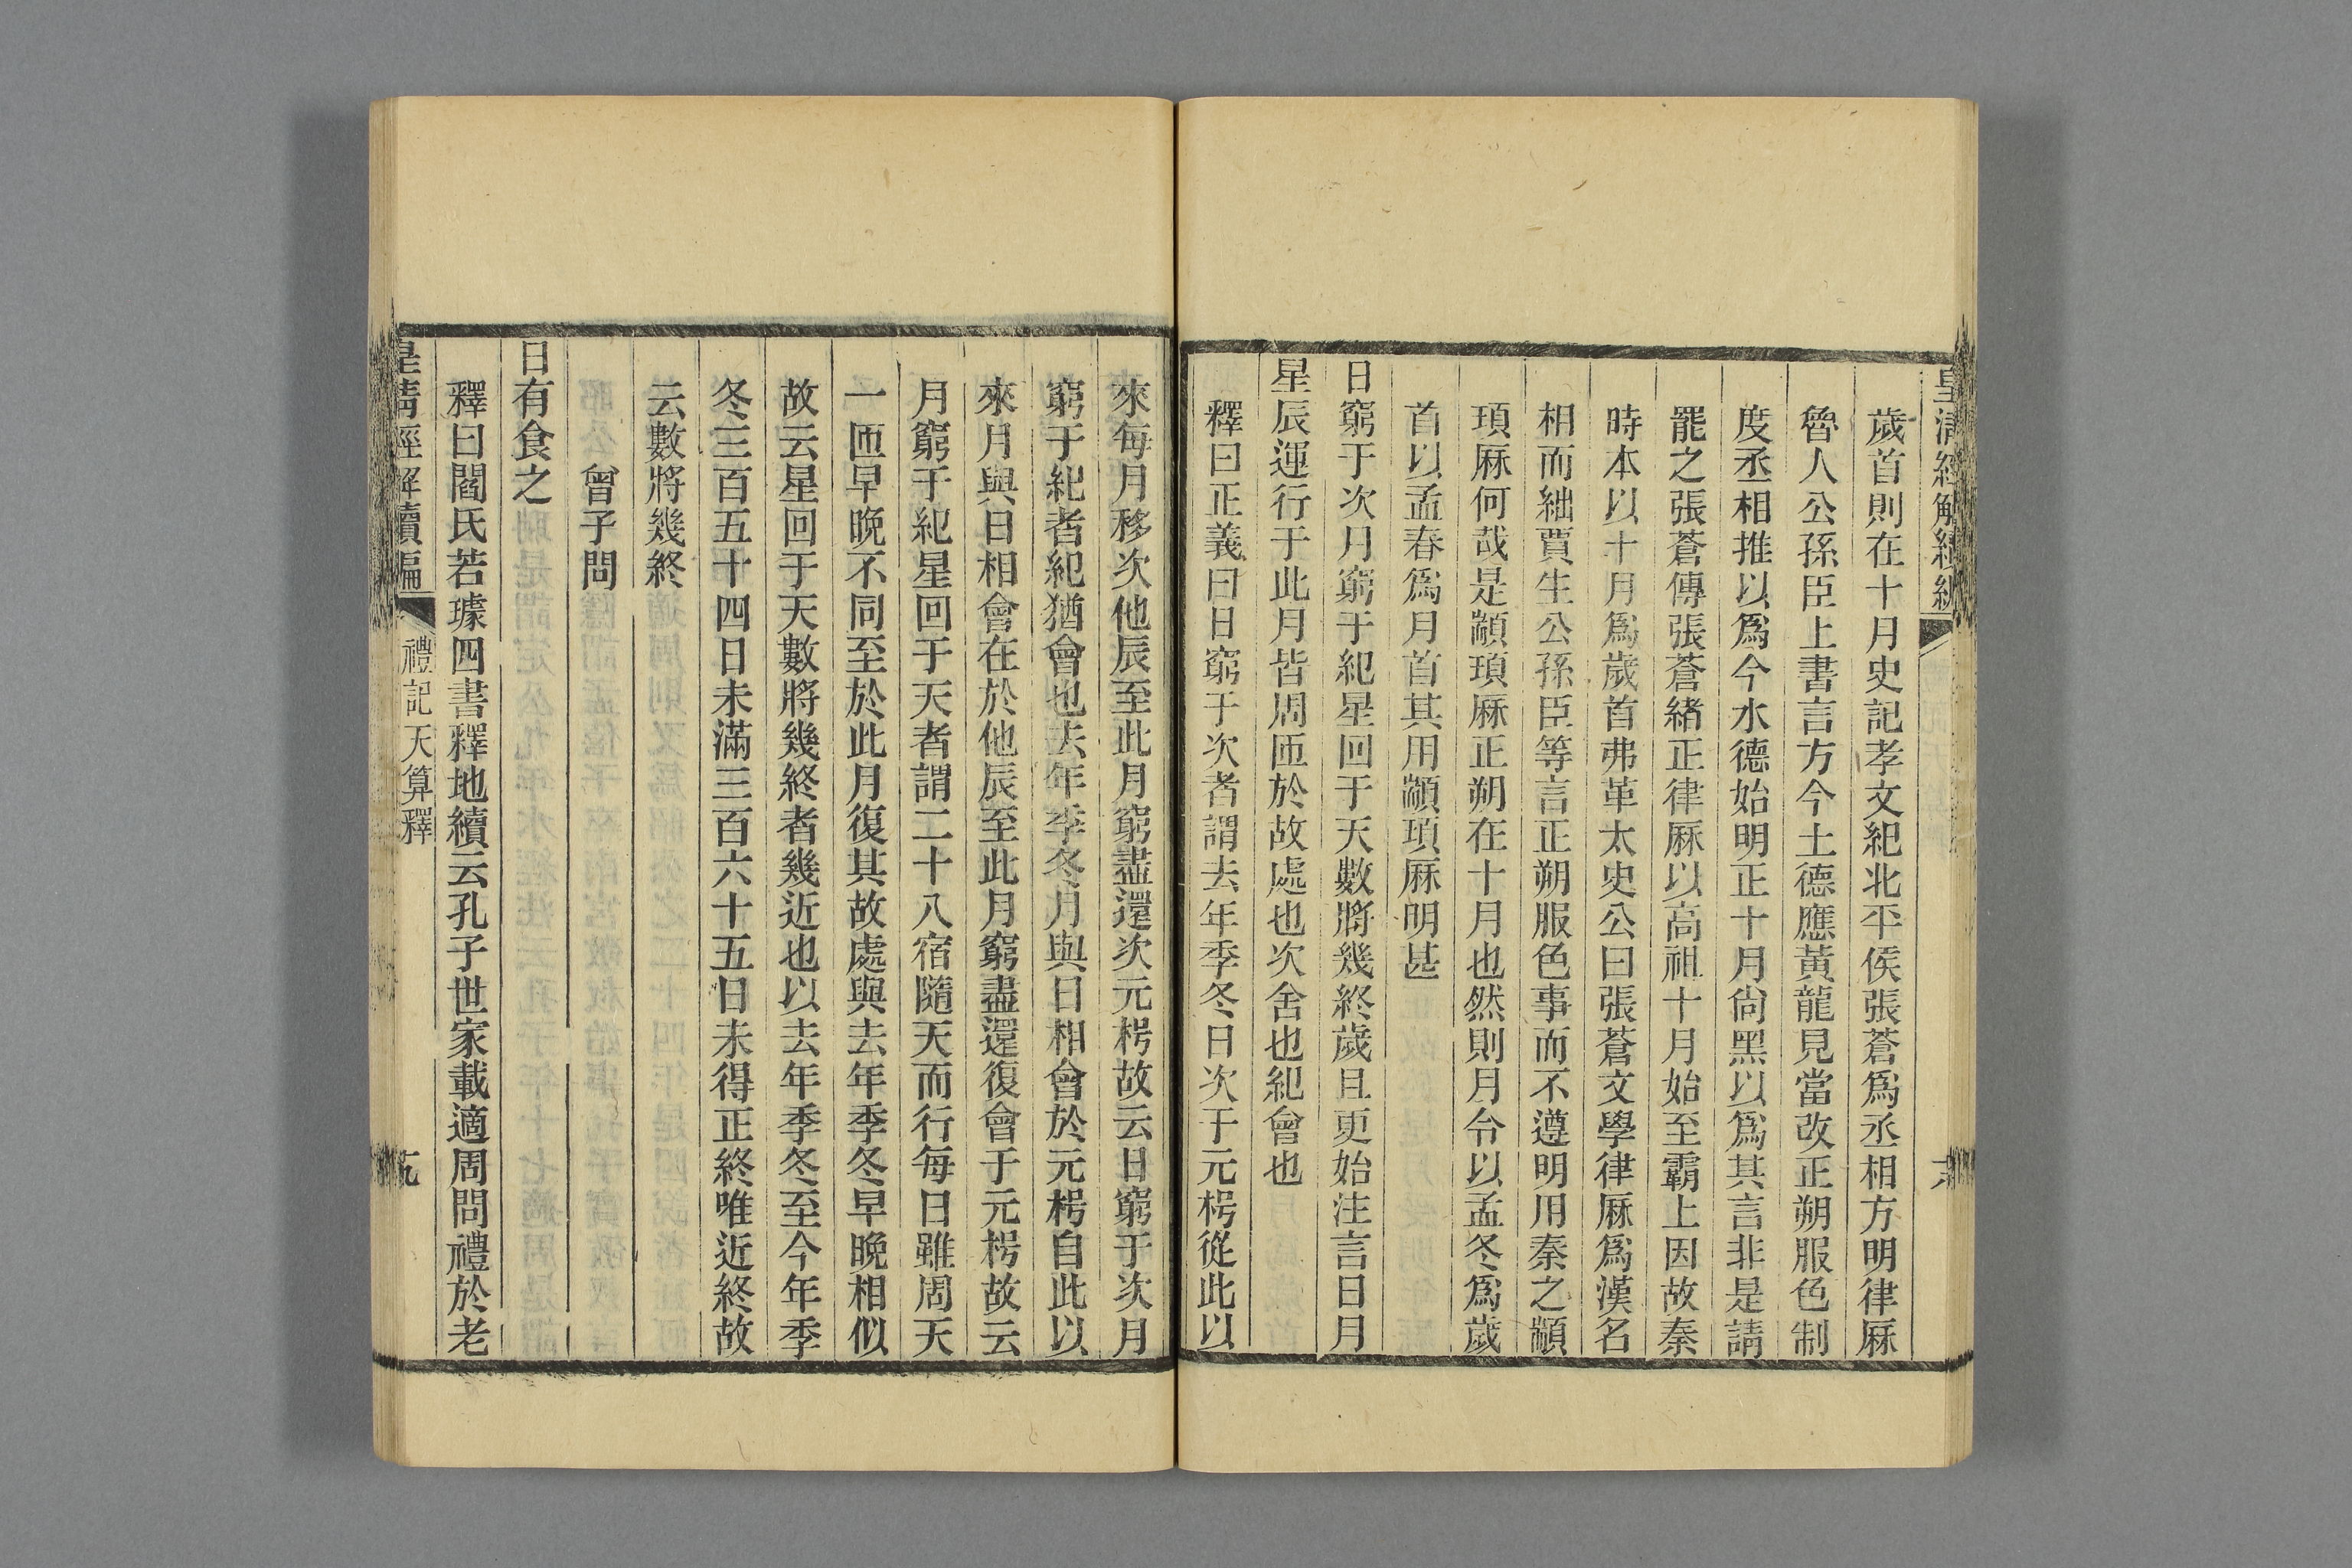 皇清經解續編
歲首則在十月史記孝文紀北平侯張蒼爲丞相方明律厤
魯人公孫臣上書言方今土德應黃龍見當改正朔服色制
度丞相推以爲今水德始明正十月尙黑以爲其言非是請
罷之張蒼傳張蒼緒正律厤以高祖十月始至霸上因故秦
時本以十月爲歲首弗革太史公曰張蒼文學律厤爲漢名
相而絀賈生公孫臣等言正朔服色事而不遵明用秦之顓
頊厤何哉是顓頊厤正朔在十月也然則月令以孟冬爲歲
首以孟春爲月首其用顓頊厤明甚
日窮于次月窮于紀星回于天數將幾終歲且更始注言日月
星辰運行于此月皆周匝於故處也次舍也紀會也
釋曰正義曰日窮于次者謂去年季冬日次于元枵從此以
來每月移次他辰至此月窮盡還次元枵故云日窮于次月
窮于紀者紀猶會也去年季冬月與日相會於元枵自此以
來月與日相會在於他辰至此月窮盡還復會于元枵故云
月窮于紀星回于天者謂二十八宿隨天而行每日雖周天
一匝早晚不同至於此月復其故處與去年季冬早晚相似
故云星回于天數將幾終者幾近也以去年季冬至今年季
冬三百五十四日未滿三百六十五日未得正終唯近終故
云數將幾終
曾子問
日有食之
釋曰閻氏若璩四書釋地續云孔子世家載適周問禮於老
皇清經解續編
禮記天算釋